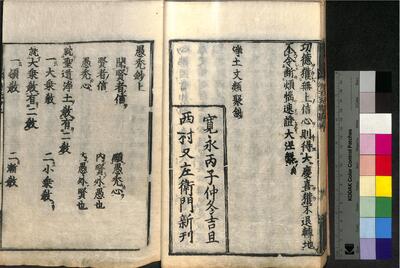 功德獲無上信心則得大慶喜獲不退轉地
不令斷煩惱速證大涅槃
淨土文類聚鈔
寛永丙子仲冬吉且
西村又左衛門新刊
愚禿鈔上
聞賢者信 顯愚禿心
賢者信 內賢外愚也
愚禿心 內愚外賢也
就聖道淨土教有二教
一大乘教 二小乘教
就大乘教有二教
一頓教 二漸教
KODAK Color Control Patches